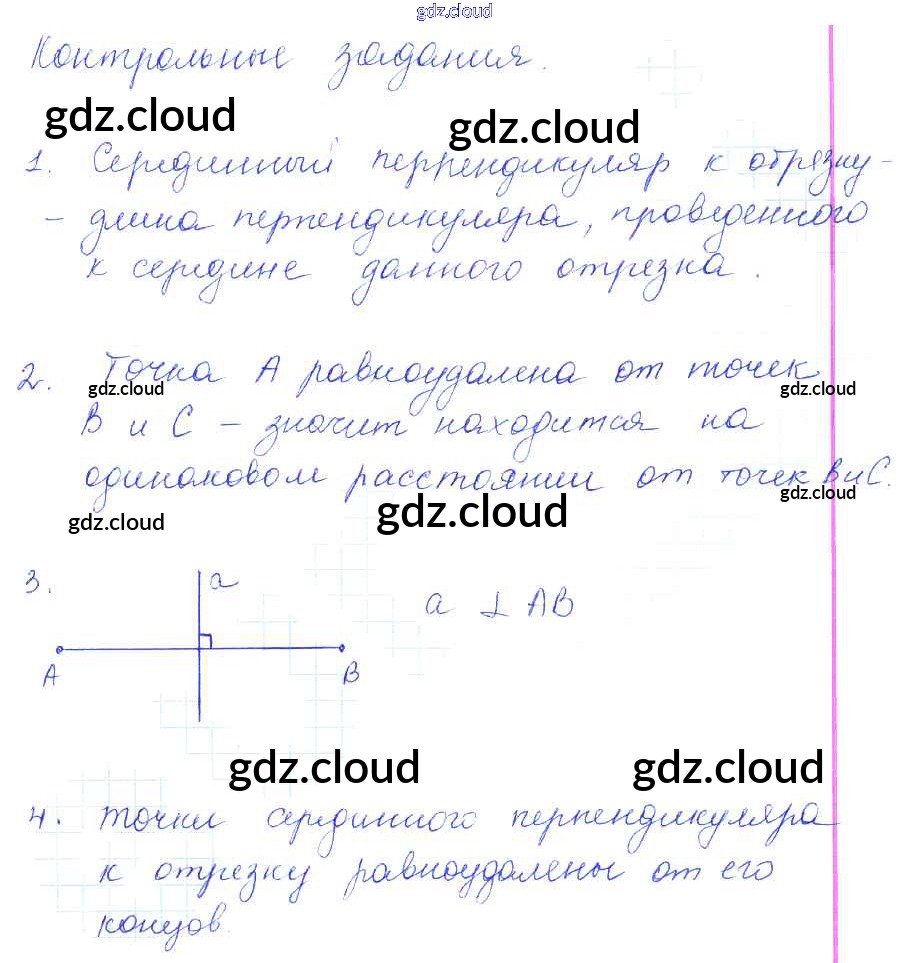 gdz.cloud
Контрольные задания.
gdz.cloud gdz.cloud
1. Серединный перпендикуляр к отрезку -
- длина перпендикуляра, проведенного
к середине данного отрезка.
2. Точка А равноудалена от точек
gdz.cloud gdz.cloud
В и С – значит находится на
одинаковом расстоянии от точек В и С.
gdz.cloud gdz.cloud gdz.cloud
3. a
a ⊥ AB
A B
gdz.cloud gdz.cloud
4. Точки серединного перпендикуляра
к отрезку равноудалены от его
концов.